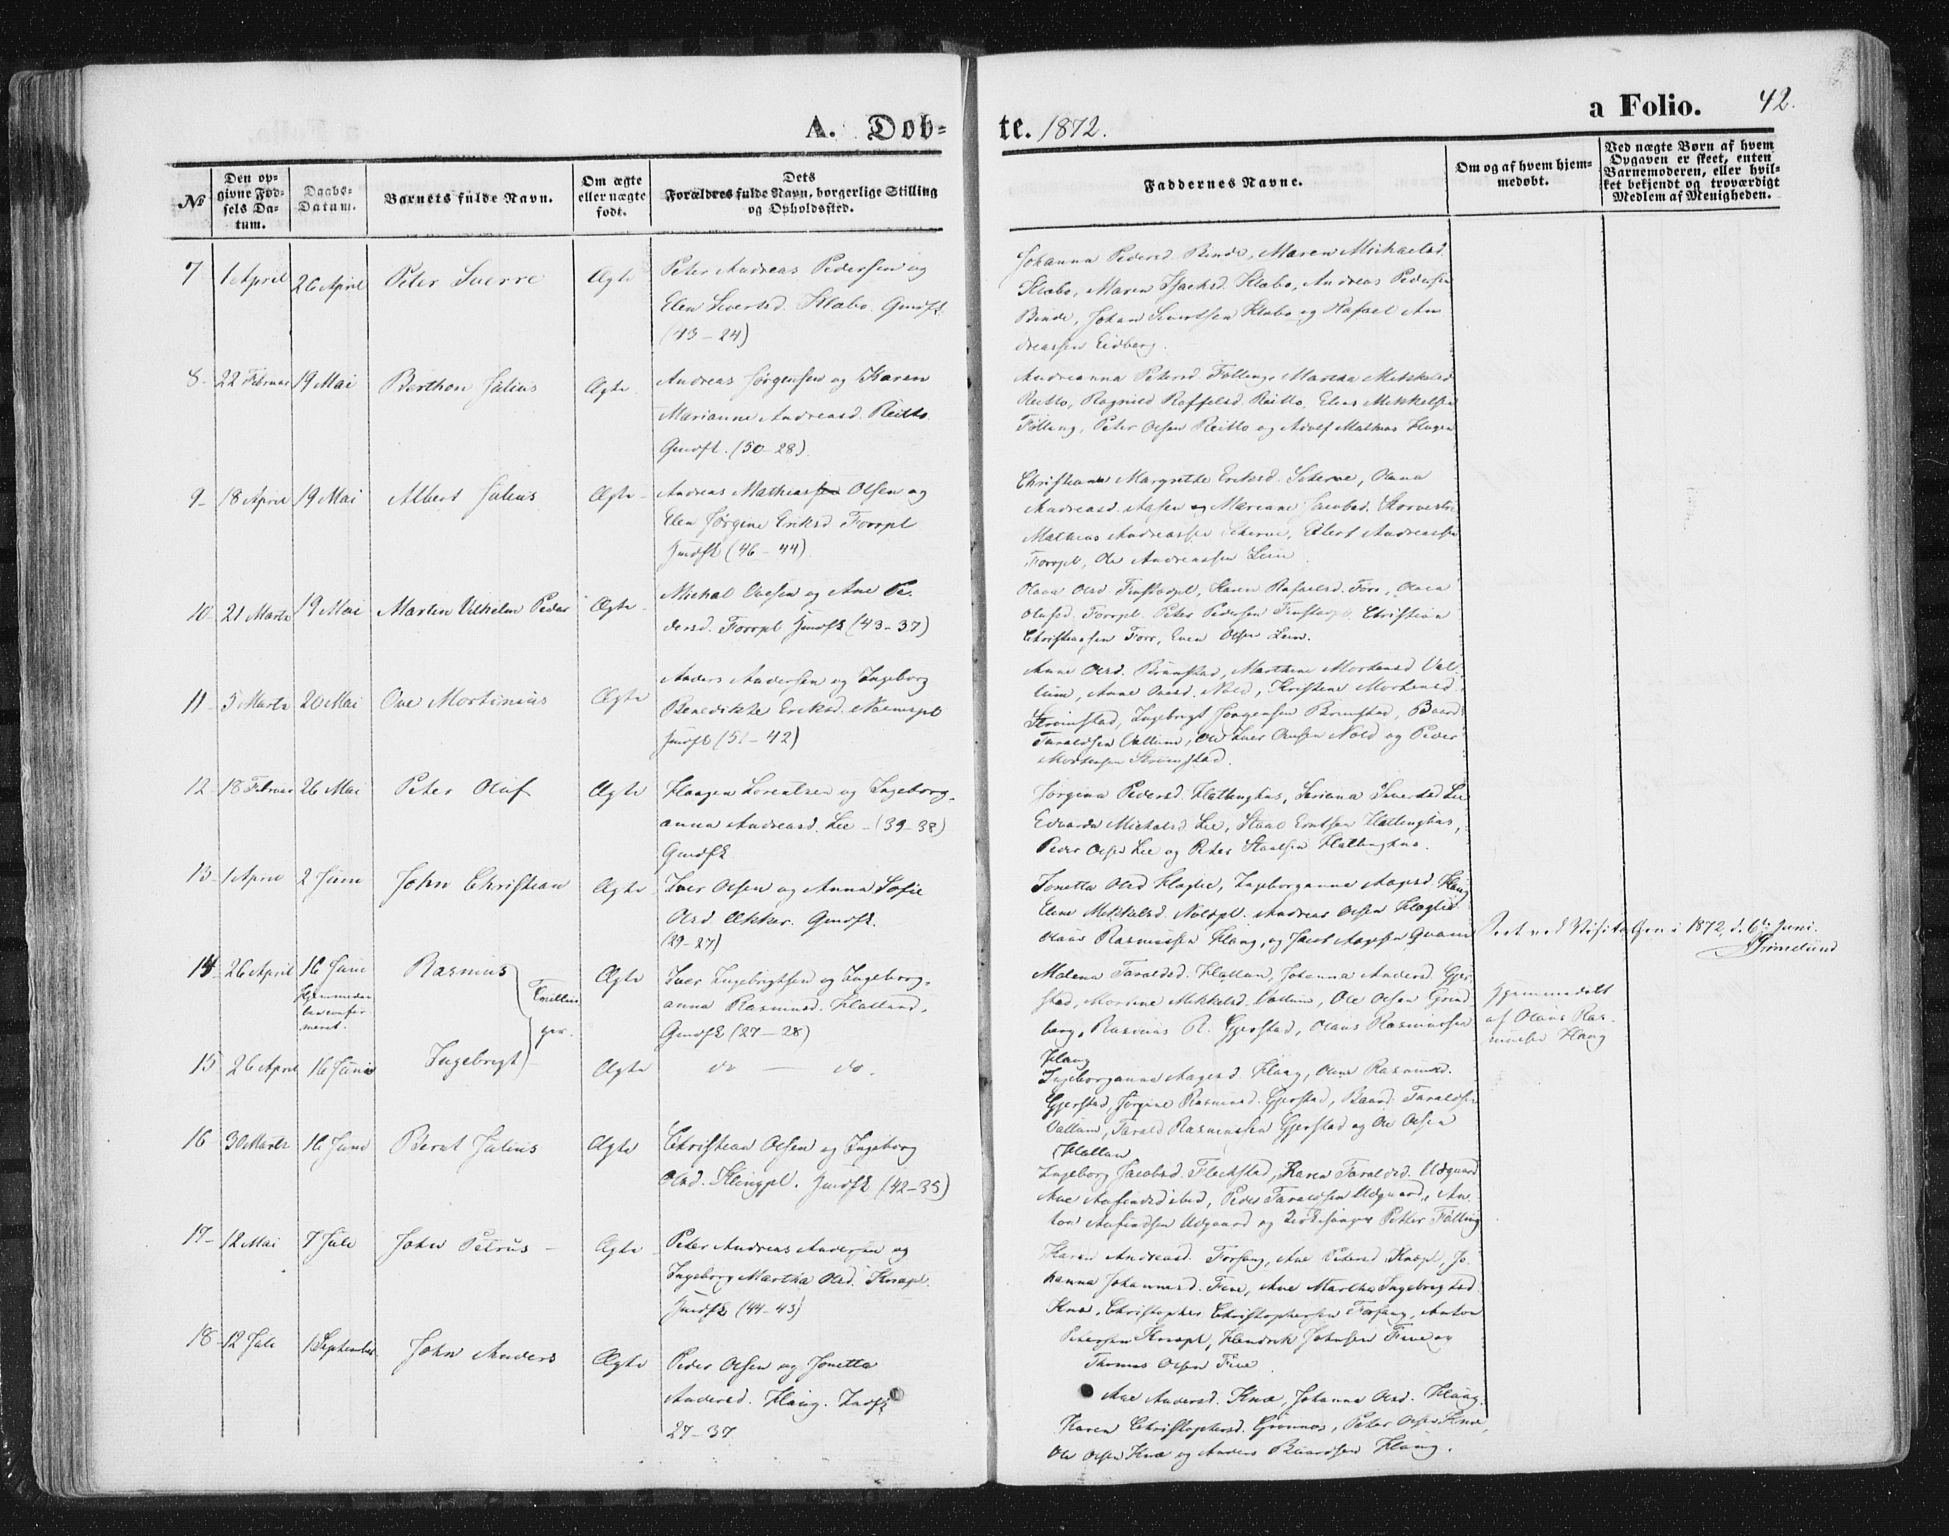 A. Døb-
te. 1872.
a Folio. 42.
№
Den op-
givne Fød-
sels Da-
tum.
Daabs-
Datum.
Barnets fulde Navn.
Om ægte
eller uægte
født.
Dets
Forældres fulde Navn, borgerlige Stilling
og Opholdssted.
Faddernes Navne.
Om og af hvem hjem-
medøbt.
Ved uægte Børn af hvem
Opgaven er skeet, enten
Barnemoderen, eller hvil-
ket bekjendt og troværdigt
Medlem af Menigheden.
7 1 April 26 April Peter Sverre Ægte
Peter Andreas Pedersen og
Elen Sivertsd. Klæbo. Gmdsk.
(43-24)
Johanna Pedersd. Binde, Maren Michaelsd.
Klæbo, Maren Isachsd. Klæbo, Andreas Pedersen
Binde, Johan Sivertsen Klæbo og Rafael An
dreassen Eidberg.
8 22 Februar 19 Mai Berthon Julius Ægte
Andreas Jørgensen og Karen
Marianne Andreasd. Reitlo
Gmdsk. (50-28)
Andreanna Petersd. Følling, Martha Mikkelsd
Reitlo, Ragnild Raffelsd. Reitlo, Elias Mikkelsen
Følling, Peter Olsen Reitlo og Adolf Mathias Hagen
9 18 April 19 Mai Albert Julius Ægte
Andreas Mathiassen Olsen og
Elen Jørgine Eriksd. Forrpl.
Jmdsk (46-44)
Margrethe Eriksd.
Andreasd. Aasen og Mariane Jacobsd.
Mathias Andreassen Edert Andreassen
Forrpl., Ole Andreassen Lein
10 21 Marts 19 Mai Martin Vilhelm Peder Ægte
Michal Ovesen og Ane Pe-
dersd. Forrpl Jmdsk (43-37)
Olava Olsd. Karen Rafaelsd. Forr,
Forrpl, Peter Pedersen Christian
Christiansen Forr, Even Olsen Lein.
11 5 Marts 20 Mai Ove Mortinius Ægte
Anders Andersen og Ingeborg
Benedikte Eriksd.
Jmdsk (51-42)
Anne Olsd. Brunstad, Marthine Mortensd Val-
lum, Anne Nold, Kristine Mortensd.
Strømstad, Ingebrigt Jørgensen Brunstad, Baard
Taraldsen Vallum, Ole Nold og Peder
Mortensen Strømstad.
12 18 Februar 26 Mai Peter Oluf Ægte
Haagen Lorentsen og Ingeborg-
anna Andreasd. Lee - (39-38)
Gmdsk
Jørgina Pedersd. Hallenghus, Seriana Sivertsd Lee
Edvarda Michalsd. Lee, Staal Hallenghus,
Peder Olsen Lee og Peter Staalsen Hallenghus.
13 1 April 2 Juni John Christian Ægte
Iver Olsen og Anna Sofie
Olsd. Ækker. Gmdsk.
(29-27)
Jonetta Olsd. Ingeborganna Aagesd. Haug
Elene Mikkelsd. Noldpl. Andreas Olsen
Olaus Rasmussen Haug, og Jacob Aagesen Qvam
Seet ved Visitatsen i 1872, d. 6te Juni.
Grimelund
14 26 April 16 Juni Rasmus Tvillin- Ægte
Hjemmedaa-
ben confir-
meret.
Iver Ingebrigtsen og Ingeborg-
anna Rasmusd. Hatland.
Gmdsk (27-28)
Malena Taraldsd. Hallan, Johanna Andersd Gjer-
stad, Mortine Mikkelsd. Vallum, Ole Olsen Grind-
berg, Rasmus R. Gjerstad, Olaus Rasmussen
Haug
Hjemmedøbt
af Olaus Ras-
mussen Haug
15 26 April 16 Juni Ingebrigt ger. Ægte
do — do.
Ingeborganna Aagesd. Haug, Oline Rasmusd.
Gjerstad, Jørgine Rasmusd. Gjerstad, Baard Taraldsen
Vallum, Tarald Rasmussen Gjerstad og Ole Olsen
Hallan
16 30 Marts 16 Juni Bernt Julius Ægte
Christian Olsen og Ingeborg
Olsd. Klingpl. Jmdsk (42-35)
Ingeborg Jacobsd. Flekstad, Karen Taraldsd. Udgaard
Ane Arfindsd ibid, Peder Taraldsen Udgaard, An-
ton Arfindsen Udgaard og Kirkesanger Petter Følling
17 12 Mai 7 Juli John Petrus Ægte
Peter Andreas Andersen og
Ingeborg Martha Olsd. Knæpl.
Jmdsk (44-43)
Karen Andreasd. Forfang, Ane Petersd. Knæpl, Jo-
hanna Johannesd. Five, Ane Martha Ingebrigtsd.
Knæ, Christopher Christophersen Forfang, Anton
Petersen Knæpl, Hendrik Johnsen Five og
Thomas Olsen Five
18 12 Juli 1 September John Anders Ægte
Peder Olsen og Jonetta
Andersd. Haug. Indsk
27-37
Ane Andersd. Knæ, Johanna Olsd. Haug.
Karen Christophersd. Grønnæs, Peter Olsen Knæ,
Ole Olsen Knæ og Anders Baardsen Haug.